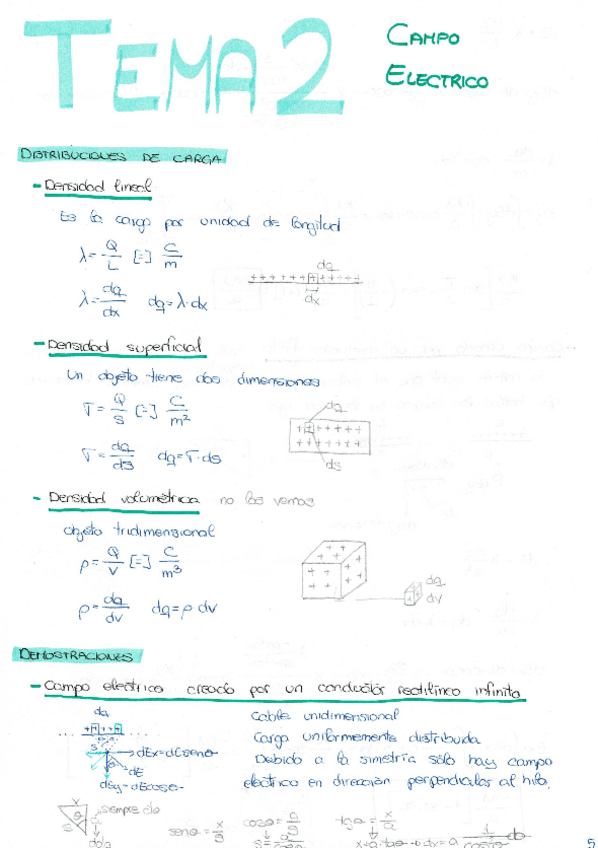 TEMA 2
CAMPO
ELECTRICO
DISTRIBUCIONES DE CARGA
- Densidad lineal
Es la carga por unidad de longitud
λ = Q/L [=] C/m
dq
+++++++++++
λ = dq/dx dq = λ·dx
dx
- Densidad superficial
Un objeto tiene dos dimensiones
dq
σ = Q/S [=] C/m²
σ = dq/ds dq = σ·ds
ds
- Densidad volumétrica no las vemos
objeto tridimensional
ρ = Q/V [=] C/m³
dq
dv
ρ = dq/dv dq = ρ dv
DEMOSTRACIONES
- Campo eléctrico creado por un conductor rectilíneo infinito
dq Cable unidimensional
Carga uniformemente distribuida
dEx = dE senθ Debido a la simetría sólo hay campo
dE
dEy = dE cosθ eléctrico en dirección perpendicular al hilo.
x siempre
senθ = x/s cosθ = a/s tgθ = x/a
5